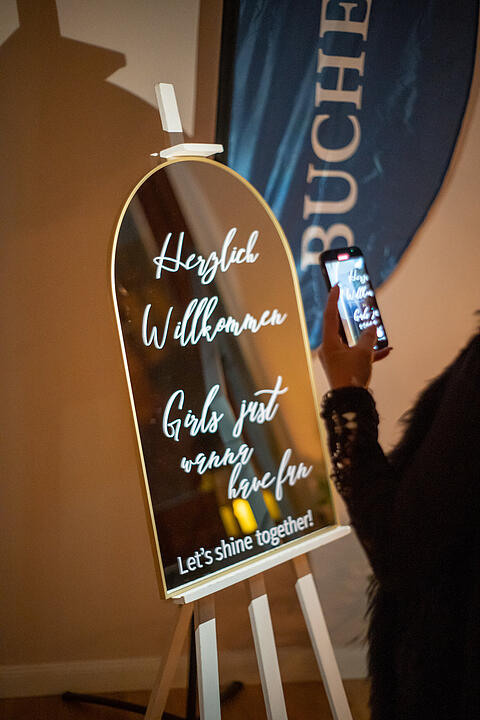 Herzlich
Willkommen
Girls just
wanna
have fun
Let's shine together!
BUCHE